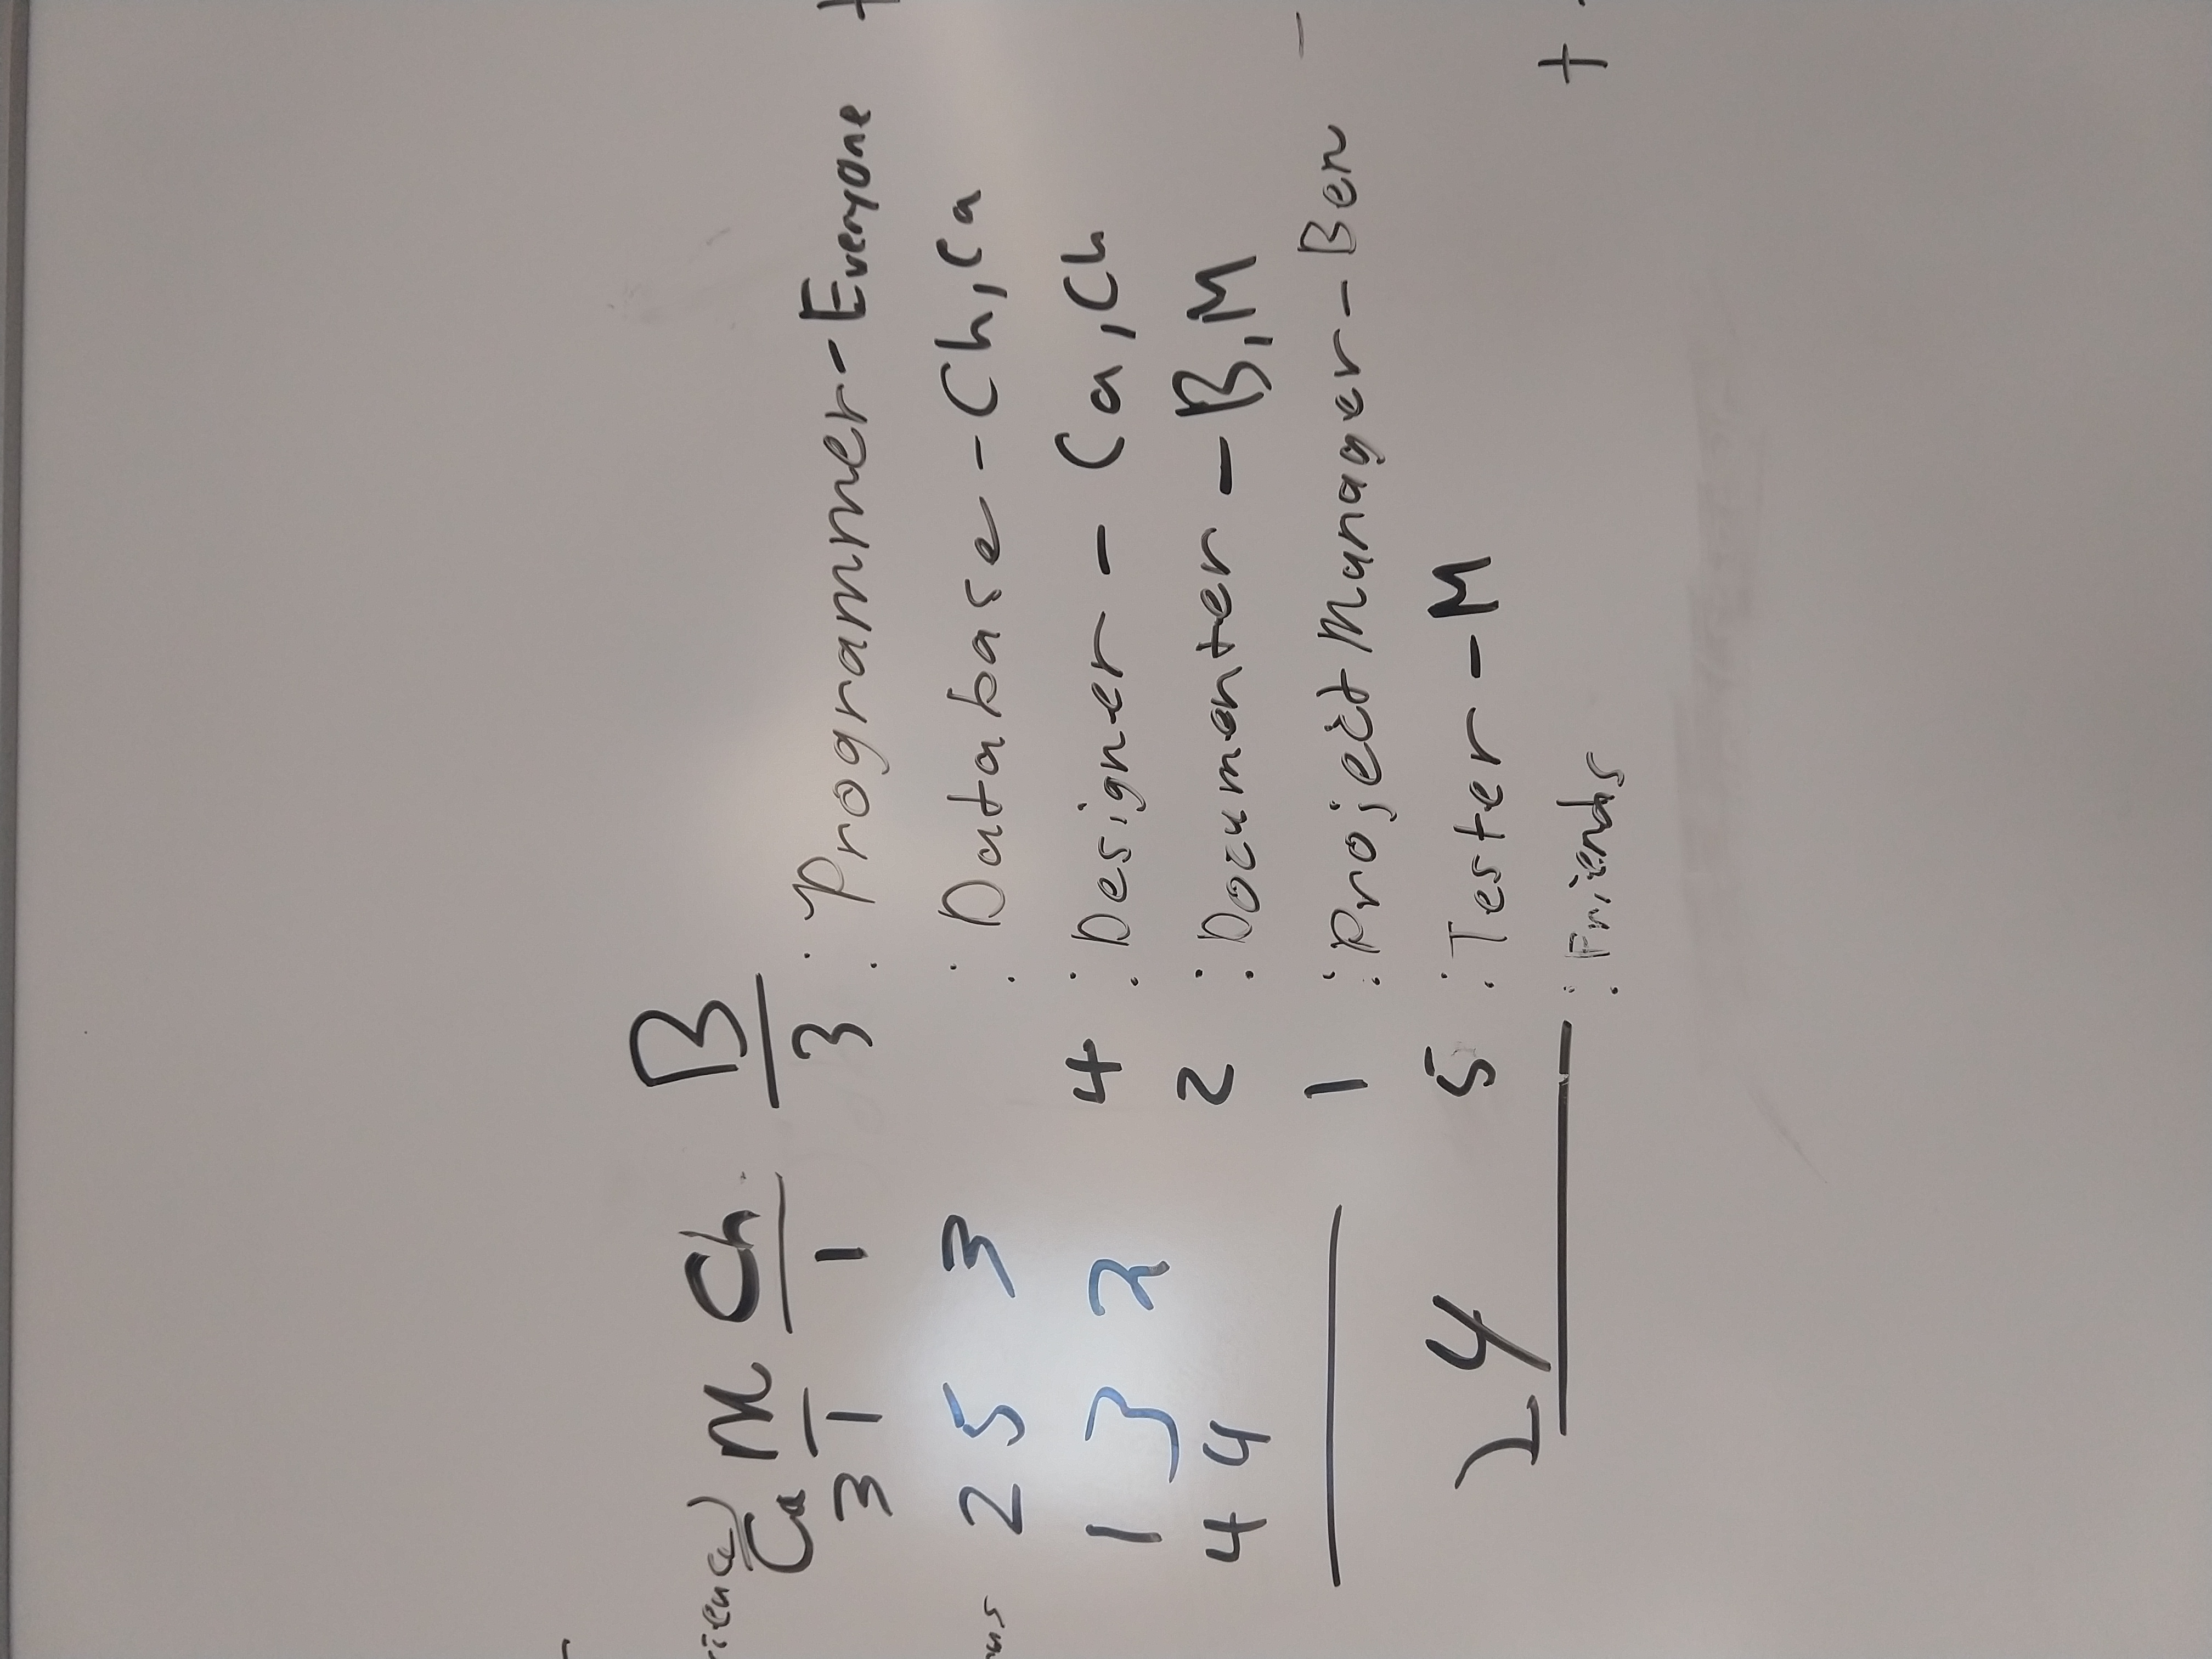 Ca M Ch B
3 1 1 3 : Programmer - Everyone +
2 5 3 : Database - Ch, Ca
1 3 2 4 : Designer - Ca, Ch
4 4 2 : Documenter - B, M
1 : Project Manager - Ben -
24 5 : Tester - M
: Friends +